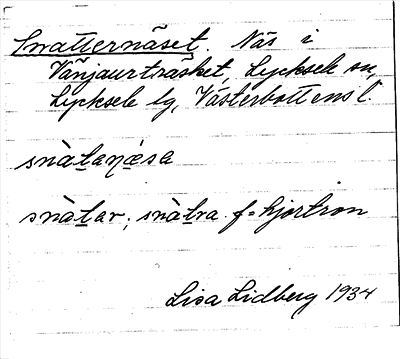 Snatternäset. Näs i
Vänjaurträsket, Lycksele sn,
Lycksele lg, Västerbottens l.
snàtaŋǽsa
snàtar; snàtra f = hjortron
Lisa Lidberg 1934